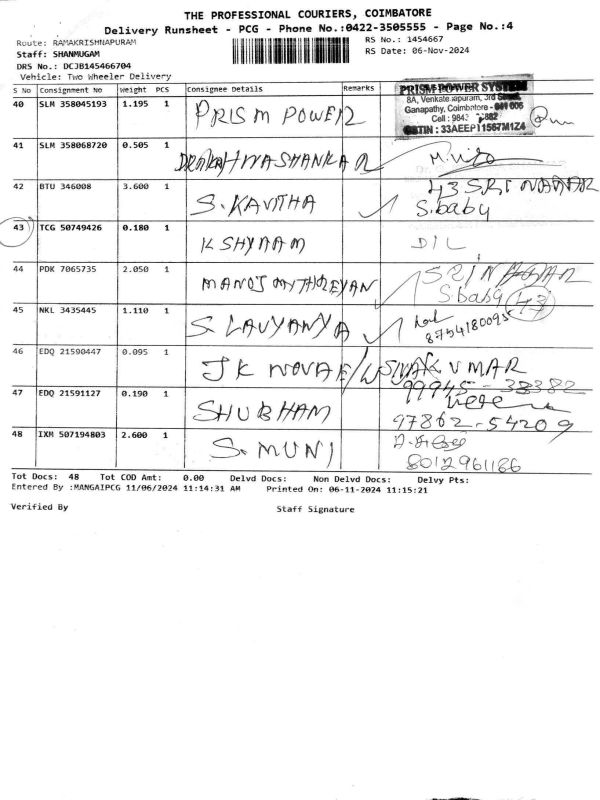 THE PROFESSIONAL COURIERS, COIMBATORE
Delivery Runsheet - PCG - Phone No.:0422-3505555 - Page No.:4
Route: RAMAKRISHNAPURAM
RS No.: 1454667
Staff: SHANMUGAM
RS Date: 06-Nov-2024
DRS No.: DCJB145466704
Vehicle: Two Wheeler Delivery
S No Consignment No Weight PCS Consignee Details Remarks
PRISM POWER SYSTEM
8A, Venkatesapuram, 3rd Street,
Ganapathy, Coimbatore - 641 006
Cell : 9843
GSTIN : 33AEEP11567M1Z4
40 SLM 358045193 1.195 1 PRISM POWER
41 SLM 358068720 0.505 1
42 BTU 346008 3.600 1 S.KAVITHA 43 SRI NAGAR
S.baby
43 TCG 50749426 0.180 1 K SHYNAM DIL
44 PDK 7065735 2.050 1 MANOJ MYTHREYAN SRINAGAR
S baby 43
45 NKL 3435445 1.110 1 S. LAVYANYA
8754180095
46 EDQ 21590447 0.095 1 JK NOVAE/W SIVAKUMAR
99945-38382
47 EDQ 21591127 0.190 1 SHUBHAM
97862-54209
48 IXM 507194803 2.600 1 S. MUNI
8012961166
Tot Docs: 48 Tot COD Amt: 0.00 Delvd Docs: Non Delvd Docs: Delvy Pts:
Entered By :MANGAIPCG 11/06/2024 11:14:31 AM Printed On: 06-11-2024 11:15:21
Verified By Staff Signature